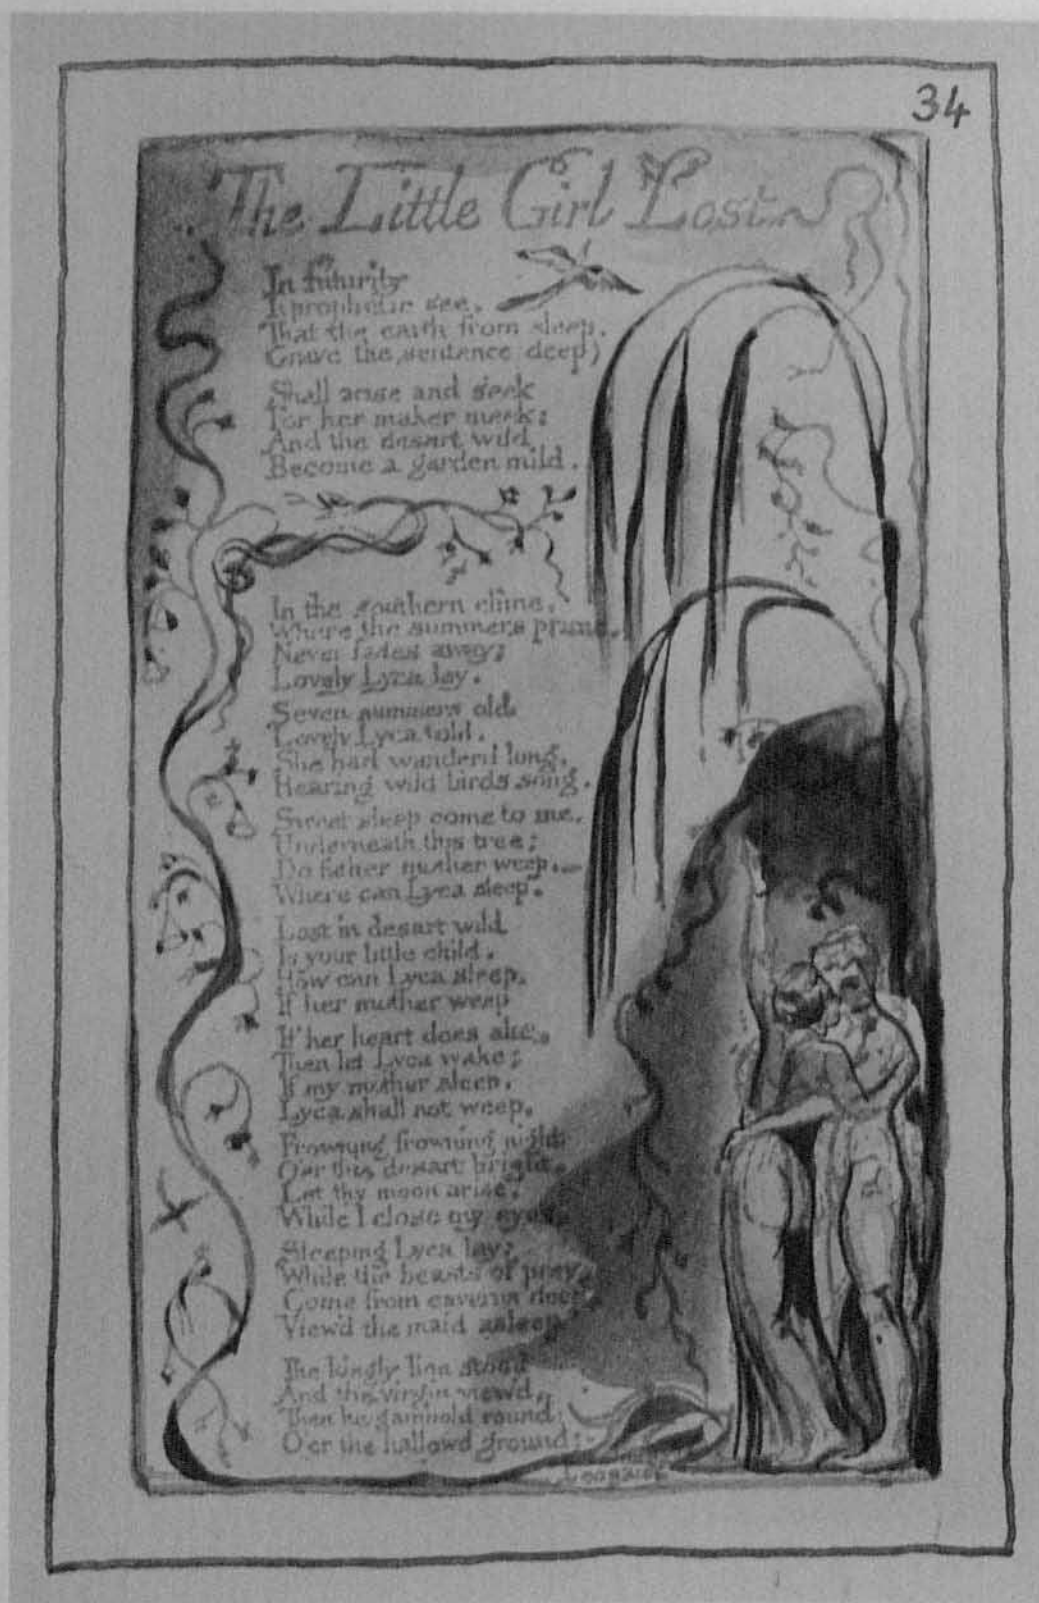 34
The Little Girl Lost
In futurity
I prophetic see,
That the earth from sleep,
(Grave the sentence deep)
Shall arise and seek
For her maker meek:
And the desart wild
Become a garden mild.
In the southern clime,
Where the summers prime,
Never fades away;
Lovely Lyca lay.
Seven summers old
Lovely Lyca told,
She had wanderd long,
Hearing wild birds song.
Sweet sleep come to me,
Underneath this tree;
Do father mother weep.—
Where can Lyca sleep.
Lost in desart wild
Is your little child.
How can Lyca sleep,
If her mother weep
If her heart does ake,
Then let Lyca wake;
If my mother sleep,
Lyca shall not weep.
Frowning frowning night,
O'er this desart bright,
Let thy moon arise,
While I close my eyes.
Sleeping Lyca lay;
While the beasts of prey,
Come from caverns deep,
View'd the maid asleep
The kingly lion stood
And the virgin view'd,
Then he gambold round
O'er the hallowd ground: